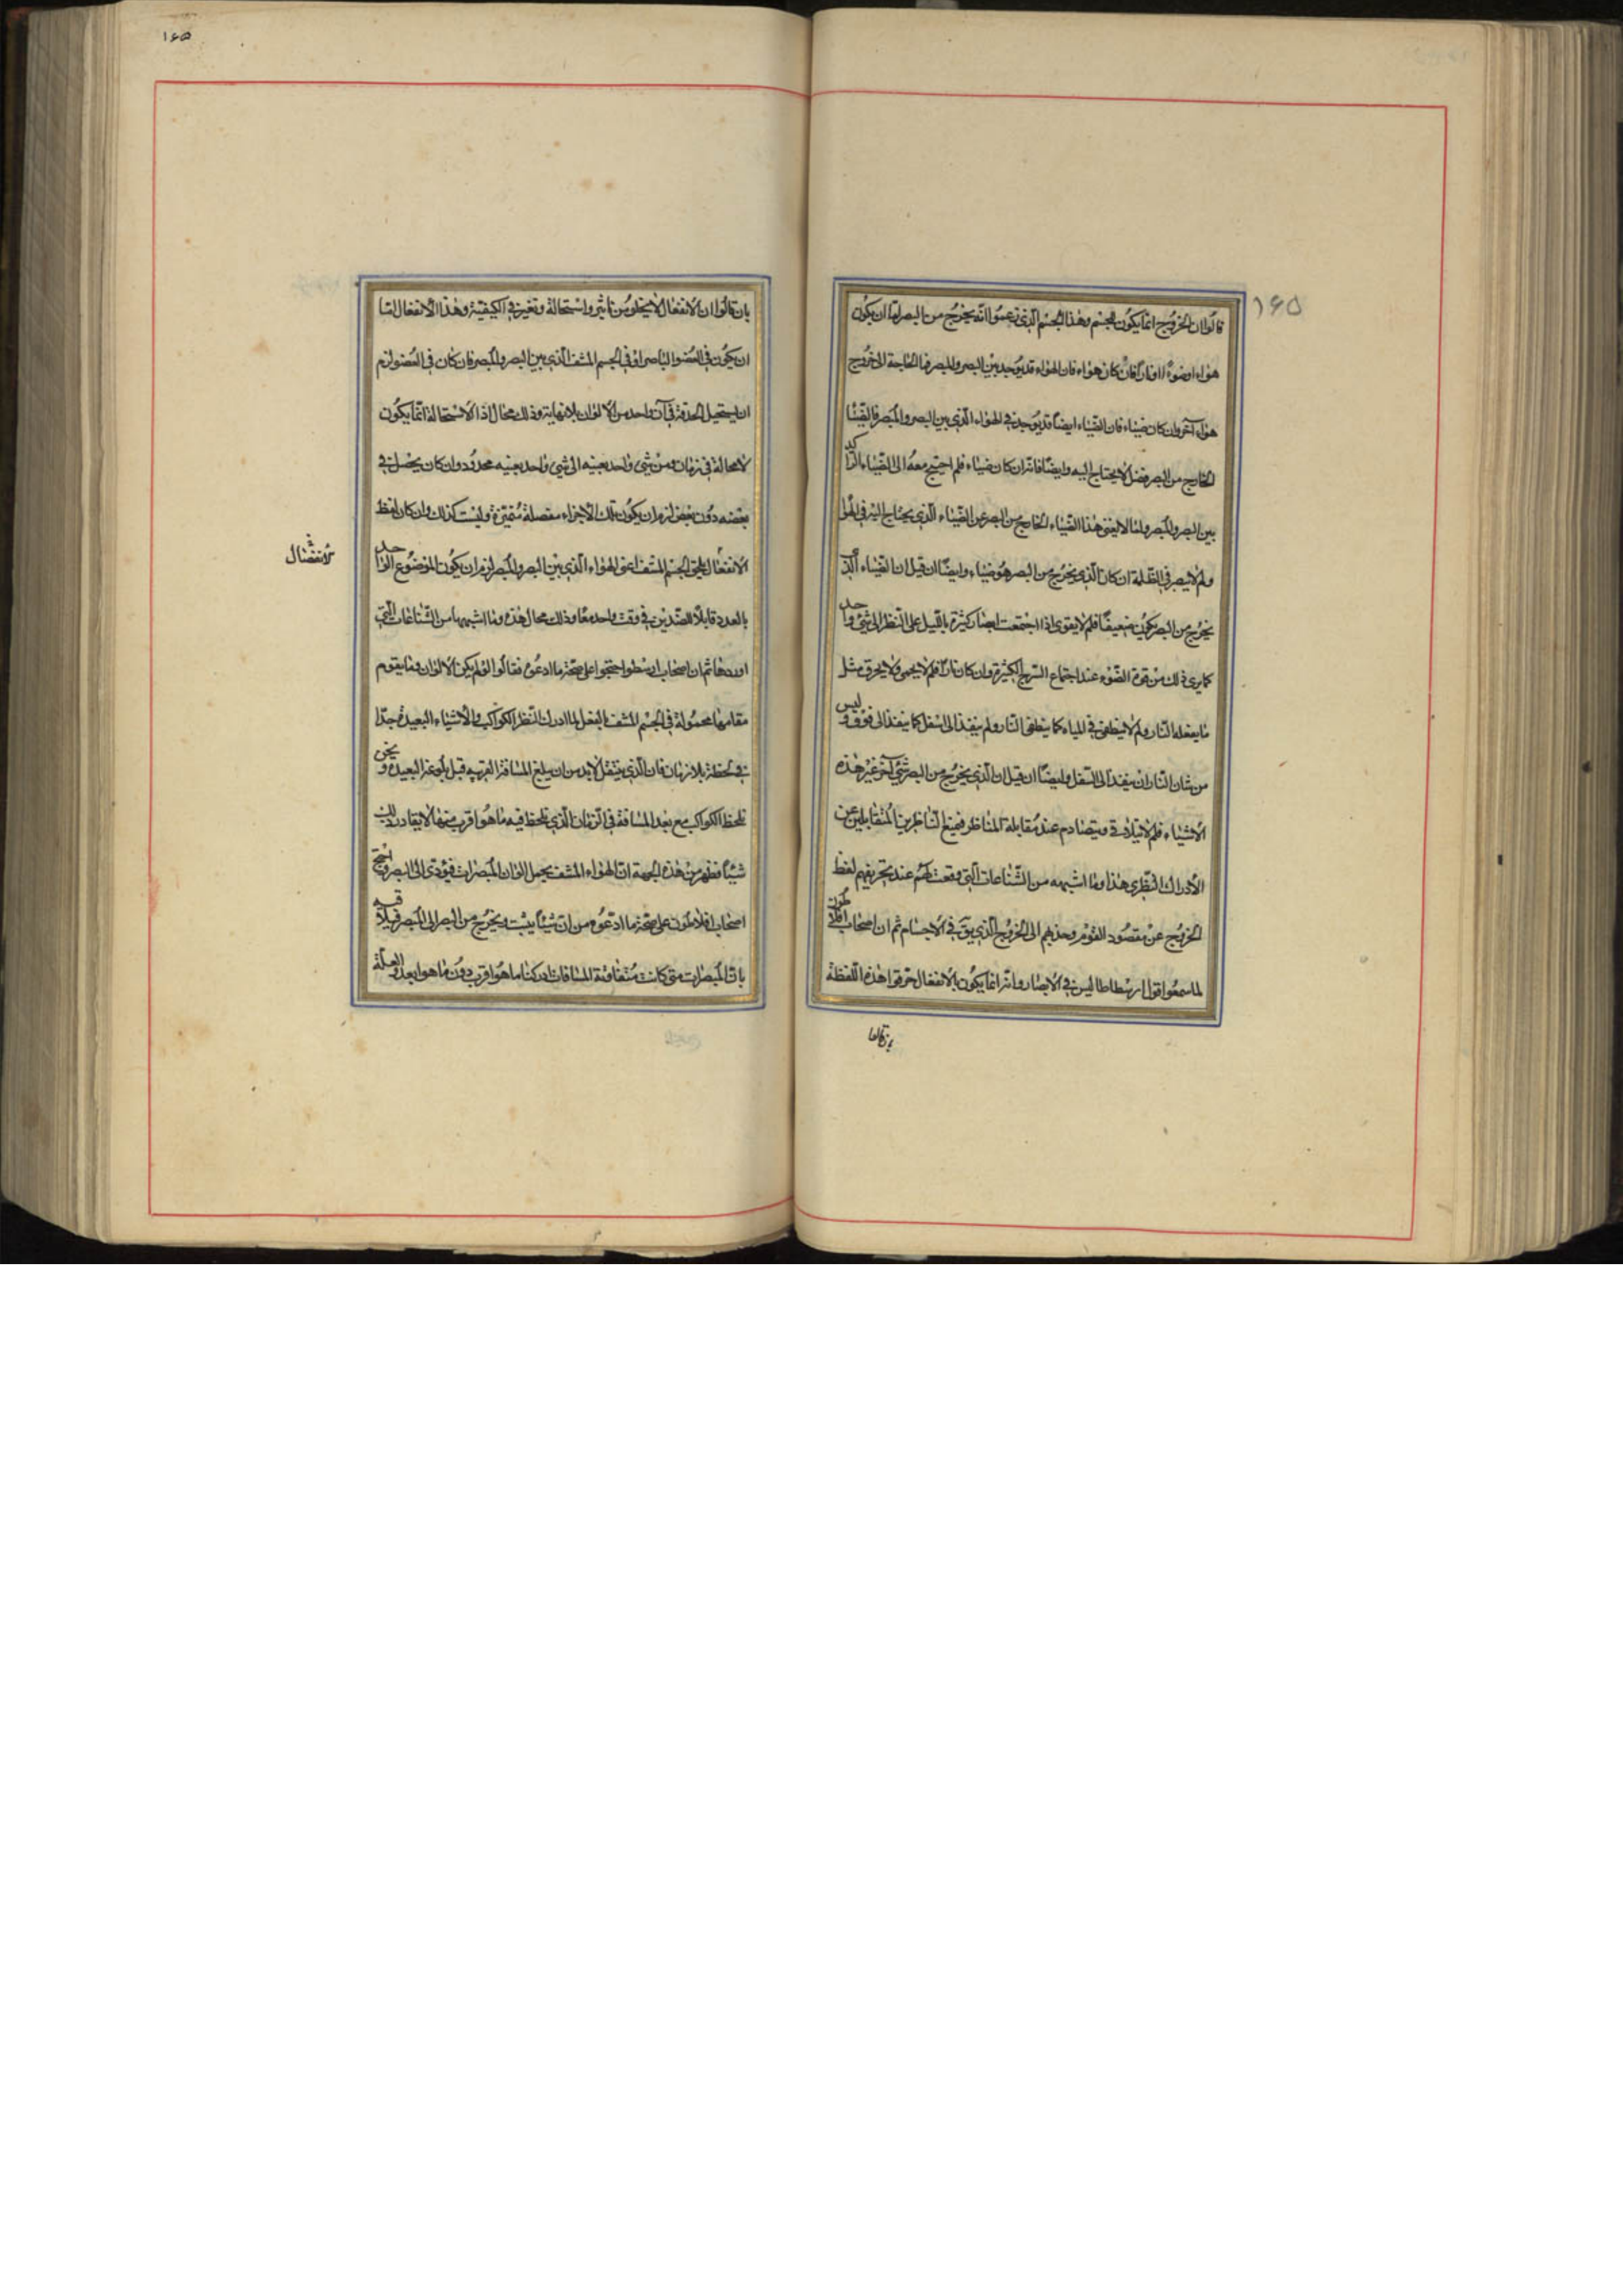 ١۶۵
قالوا ان الخروج انما يكون للجسم وهذا الجسم الذي زعموا انه يخرج من البصر اما ان يكون
هواء او ضوءً او نارًا فان كان هواء فان الهواء قد يوجد بين البصر والمبصر فما الحاجة الى خروج
هواء آخر وان كان ضياء فان الضياء ايضًا قد يوجد في الهواء الذي بين البصر والمبصر فالضياء
الخارج من البصر فضل لا يحتاج اليه وايضًا فانه ان كان ضياء فلم احتيج معه الى الضياء الراكد
بين البصر والمبصر ولما لا يغنى هذا الضياء الخارج من البصر عن الضياء الذي يحتاج اليه في الهواء
ولم لا يبصر في الظلمة ان كان الذي يخرج من البصر هو ضياء وايضًا ان قيل ان الضياء الذي
يخرج من البصر يكون ضعيفًا فلم لا يقوى اذا اجتمعت ابصار كثيرة بالليل على النظر الى شئ واحد
كما يرى ذلك من قوة الضوء عند اجتماع السرج الكثيرة وان كان نارًا فلم لا يحمى ولا يحرق مثل
ما يفعله النار ولم لا ينطفى في المياه كما ينطفى النار ولم ينفذ الى السفل كما ينفذ الى فوق وليس
من شان النار ان ينفذ الى السفل وايضًا ان قيل ان الذي يخرج من البصر شئ آخر غير هذه
الاشياء فلم لا يتلاقى ويتصادم عند مقابلة المناظر فيمنع الناظرين المتقابلين عن
الادراك النظري هذا وما اشبهه من الشناعات التي وقعت لهم عند تحريفهم لفظ
الخروج عن مقصود القوم وحذهم الى الخروج الذي يق في الاجسام ثم ان اصحاب افلاطون
لما سمعوا اقوال ارسطاطاليس في الابصار وانه انما يكون بالانفعال حرفوا هذه اللفظة
بان قالوا
١۶۵
بان قالوا ان الانفعال لا يخلو من تاثير واستحالة وتغير في الكيفية وهذا الانفعال اما
ان يكون في العضو الباصر او في الجسم المشف الذي بين البصر والمبصر فان كان في العضو لزم
ان يستحيل الحدقة في آن واحد من الالوان بلا نهاية وذلك محال اذ الاستحالة انما يكون
لا محالة في زمان ومن شئ واحد بعينه الى شئ واحد بعينه محدود وان كان يحصل في
بعضه دون بعض لزم ان يكون تلك الاجزاء مفصلة متميزة وليست كذلك وان كان لفظ
الانفعال يلحق الجسم المشف اعنى الهواء الذي بين البصر والمبصر لزم ان يكون الموضوع الواحد
بالعدد قابلًا للضدين في وقت واحد معًا وذلك محال هذه وما اشبهها من الشناعات التي
اوردها ثم ان اصحاب ارسطو احتجوا على صحة ما ادعوه فقالوا لو لم يكن الالوان وما يقوم
مقامها محمولة في الجسم المشف بالفعل لما ادرك النظر الكواكب والاشياء البعيدة جدًا
في لحظة بلا زمان فان الذي ينتقل لا بد من ان يبلغ المسافة القريبه قبل بلوغه البعيدة ونحن
نلحظ الكواكب مع بعد المسافة في الزمان الذي نلحظ فيه ما هو اقرب منها لا يغادر ذلك
شيئًا فظهر من هذه الجهة ان الهواء المشف يحمل الوان المبصرات فيؤدى الى البصر واحتج
اصحاب افلاطون على صحة ما ادعوه من ان شيئًا ينبت ويخرج من البصر الى المبصر فيلاقيه
بان المبصرات متى كانت متفاوتة المسافات ادركنا ما هو اقرب دون ما هو ابعد والعلة
الانفصال